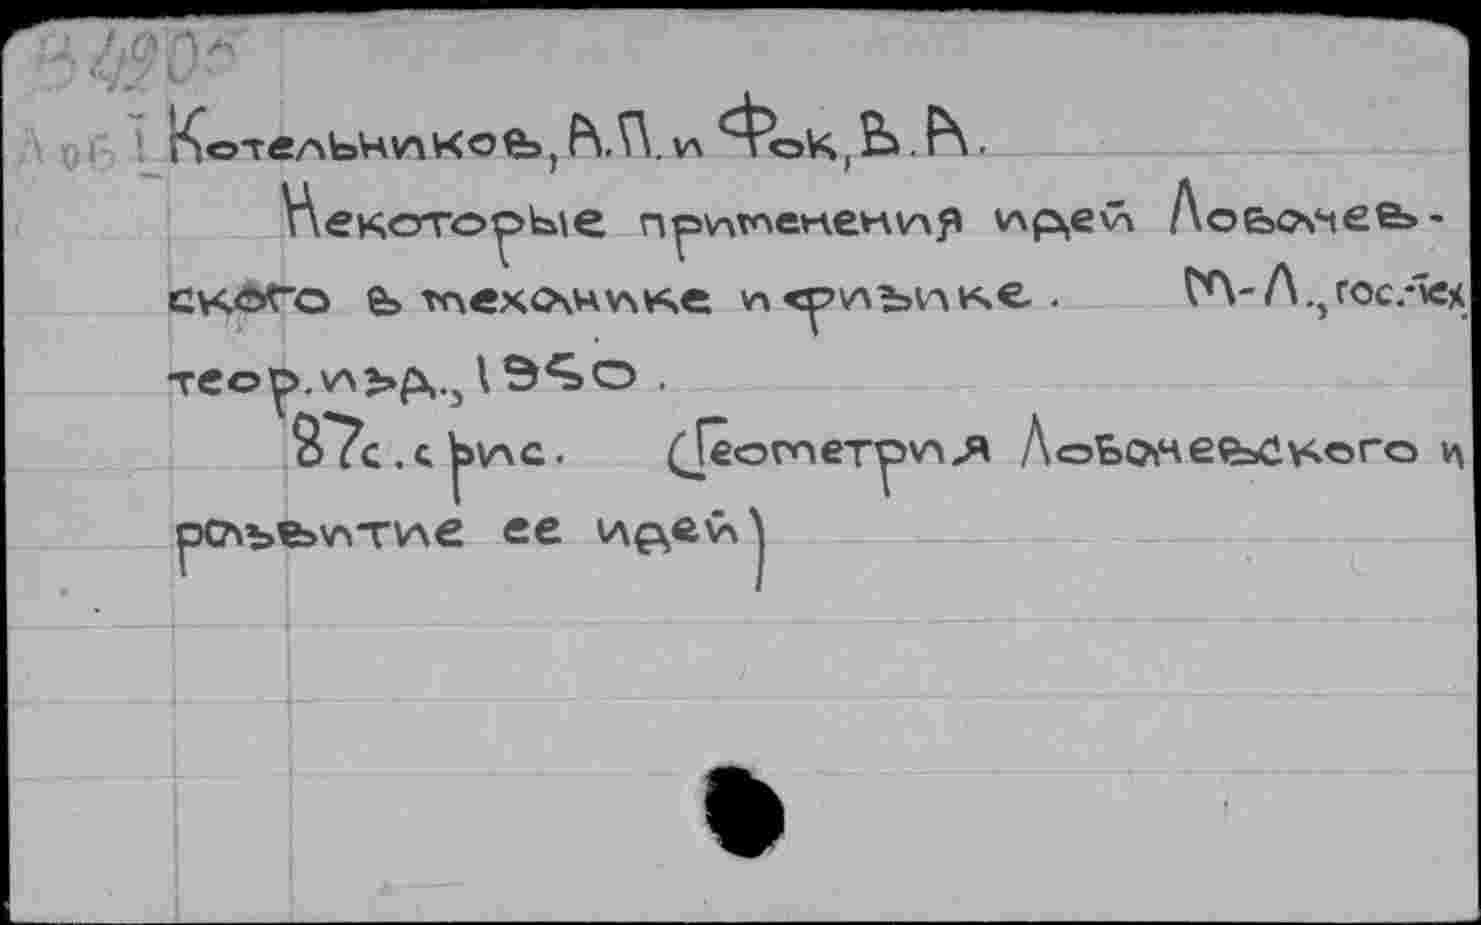 Котельников, А.П. и Фок, В.А.
Некоторые применения идей Лобачев-
ского в механике и физике. М-Л., гос.тех
теор.изд., 1950.
87с. с рис. (Геометрия Лобачевского и
развитие ее идей)